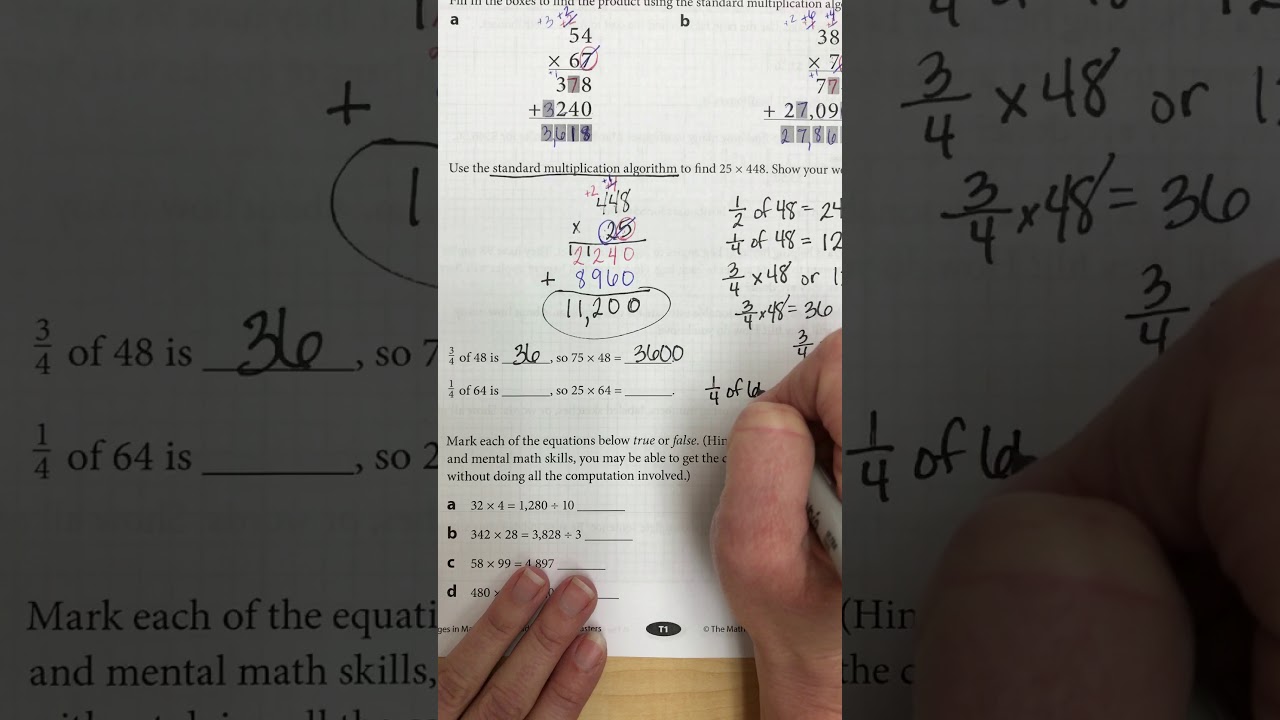 Fill in the boxes to find the product using the standard multiplication
a
b
+3 +2
54
× 67
378
+3240
3,618
+2 +6 +4
38
× 7
77
+ 27,09
27,86
Use the standard multiplication algorithm to find 25 × 448. Show your
+2 +4
448
× 25
11
2240
+ 8960
11,200
1/2 of 48 = 24
1/4 of 48 = 12
3/4 × 48 or
3/4 × 48 = 36
3/4
3/4 of 48 is 36, so 75 × 48 = 3600
1/4 of 64 is ______, so 25 × 64 = ______.
1/4 of 6
Mark each of the equations below true or false. (Hin
and mental math skills, you may be able to get the
without doing all the computation involved.)
a 32 × 4 = 1,280 ÷ 10 ______
b 342 × 28 = 3,828 ÷ 3 ______
c 58 × 99 = 4,897 ______
d 480 ×
T1
© The Math
+
1
3/4 of 48 is 36, so 7
1/4 of 64 is ______, so 2
Mark each of the equati
and mental math skills,
4
3/4 × 48 or
3/4 × 48 = 36
3/4
1/4 of 6
(Hin